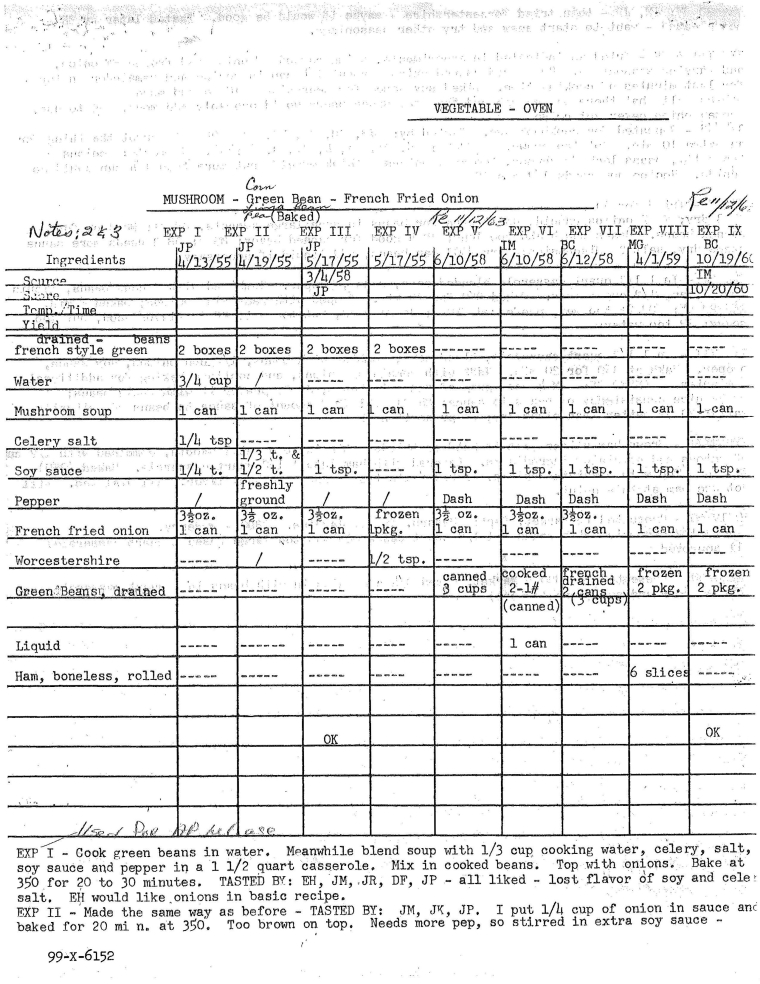 VEGETABLE - OVEN
Corn
MUSHROOM - Green Bean - French Fried Onion
Pea (Baked)
Re 11/12/63
Notes; 2 & 3 EXP I EXP II EXP III EXP IV EXP V EXP VI EXP VII EXP VIII EXP IX
JP JP JP IM BC MG BC
Ingredients 4/13/55 4/19/55 5/17/55 5/17/55 6/10/58 6/10/58 6/12/58 4/1/59 10/19/60
Source 3/4/58 IM
Score JP 10/20/60
Temp./Time
Yield
drained - beans
french style green 2 boxes 2 boxes 2 boxes 2 boxes ----- ----- ----- ----- -----
Water 3/4 cup / ----- ----- ----- ----- ----- ----- -----
Mushroom soup 1 can 1 can 1 can 1 can 1 can 1 can 1 can 1 can 1 can
Celery salt 1/4 tsp ----- ----- ----- ----- ----- ----- ----- -----
1/3 t. &
Soy sauce 1/4 t. 1/2 t. 1 tsp. ----- 1 tsp. 1 tsp. 1 tsp. 1 tsp. 1 tsp.
freshly
Pepper / ground / / Dash Dash Dash Dash Dash
3½oz. 3½ oz. 3½oz. frozen 3½ oz. 3½oz. 3½oz.
French fried onion 1 can 1 can 1 can 1pkg. 1 can 1 can 1 can 1 can 1 can
Worcestershire ----- / ----- 1/2 tsp. ----- ----- ----- ----- -----
canned cooked french frozen frozen
drained
Green Beans, drained 3 cups 2-1# 2 cans 2 pkg. 2 pkg.
(canned) (3 cups)
Liquid ----- ----- ----- ----- ----- 1 can ----- ----- -----
Ham, boneless, rolled ----- ----- ----- ----- ----- ----- ----- 6 slices -----
OK OK
Used For AP release
EXP I - Cook green beans in water. Meanwhile blend soup with 1/3 cup cooking water, celery, salt,
soy sauce and pepper in a 1 1/2 quart casserole. Mix in cooked beans. Top with onions. Bake at
350 for 20 to 30 minutes. TASTED BY: EH, JM, JR, DF, JP - all liked - lost flavor of soy and cele
salt. EH would like onions in basic recipe.
EXP II - Made the same way as before - TASTED BY: JM, JK, JP. I put 1/4 cup of onion in sauce and
baked for 20 mi n. at 350. Too brown on top. Needs more pep, so stirred in extra soy sauce -
99-X-6152